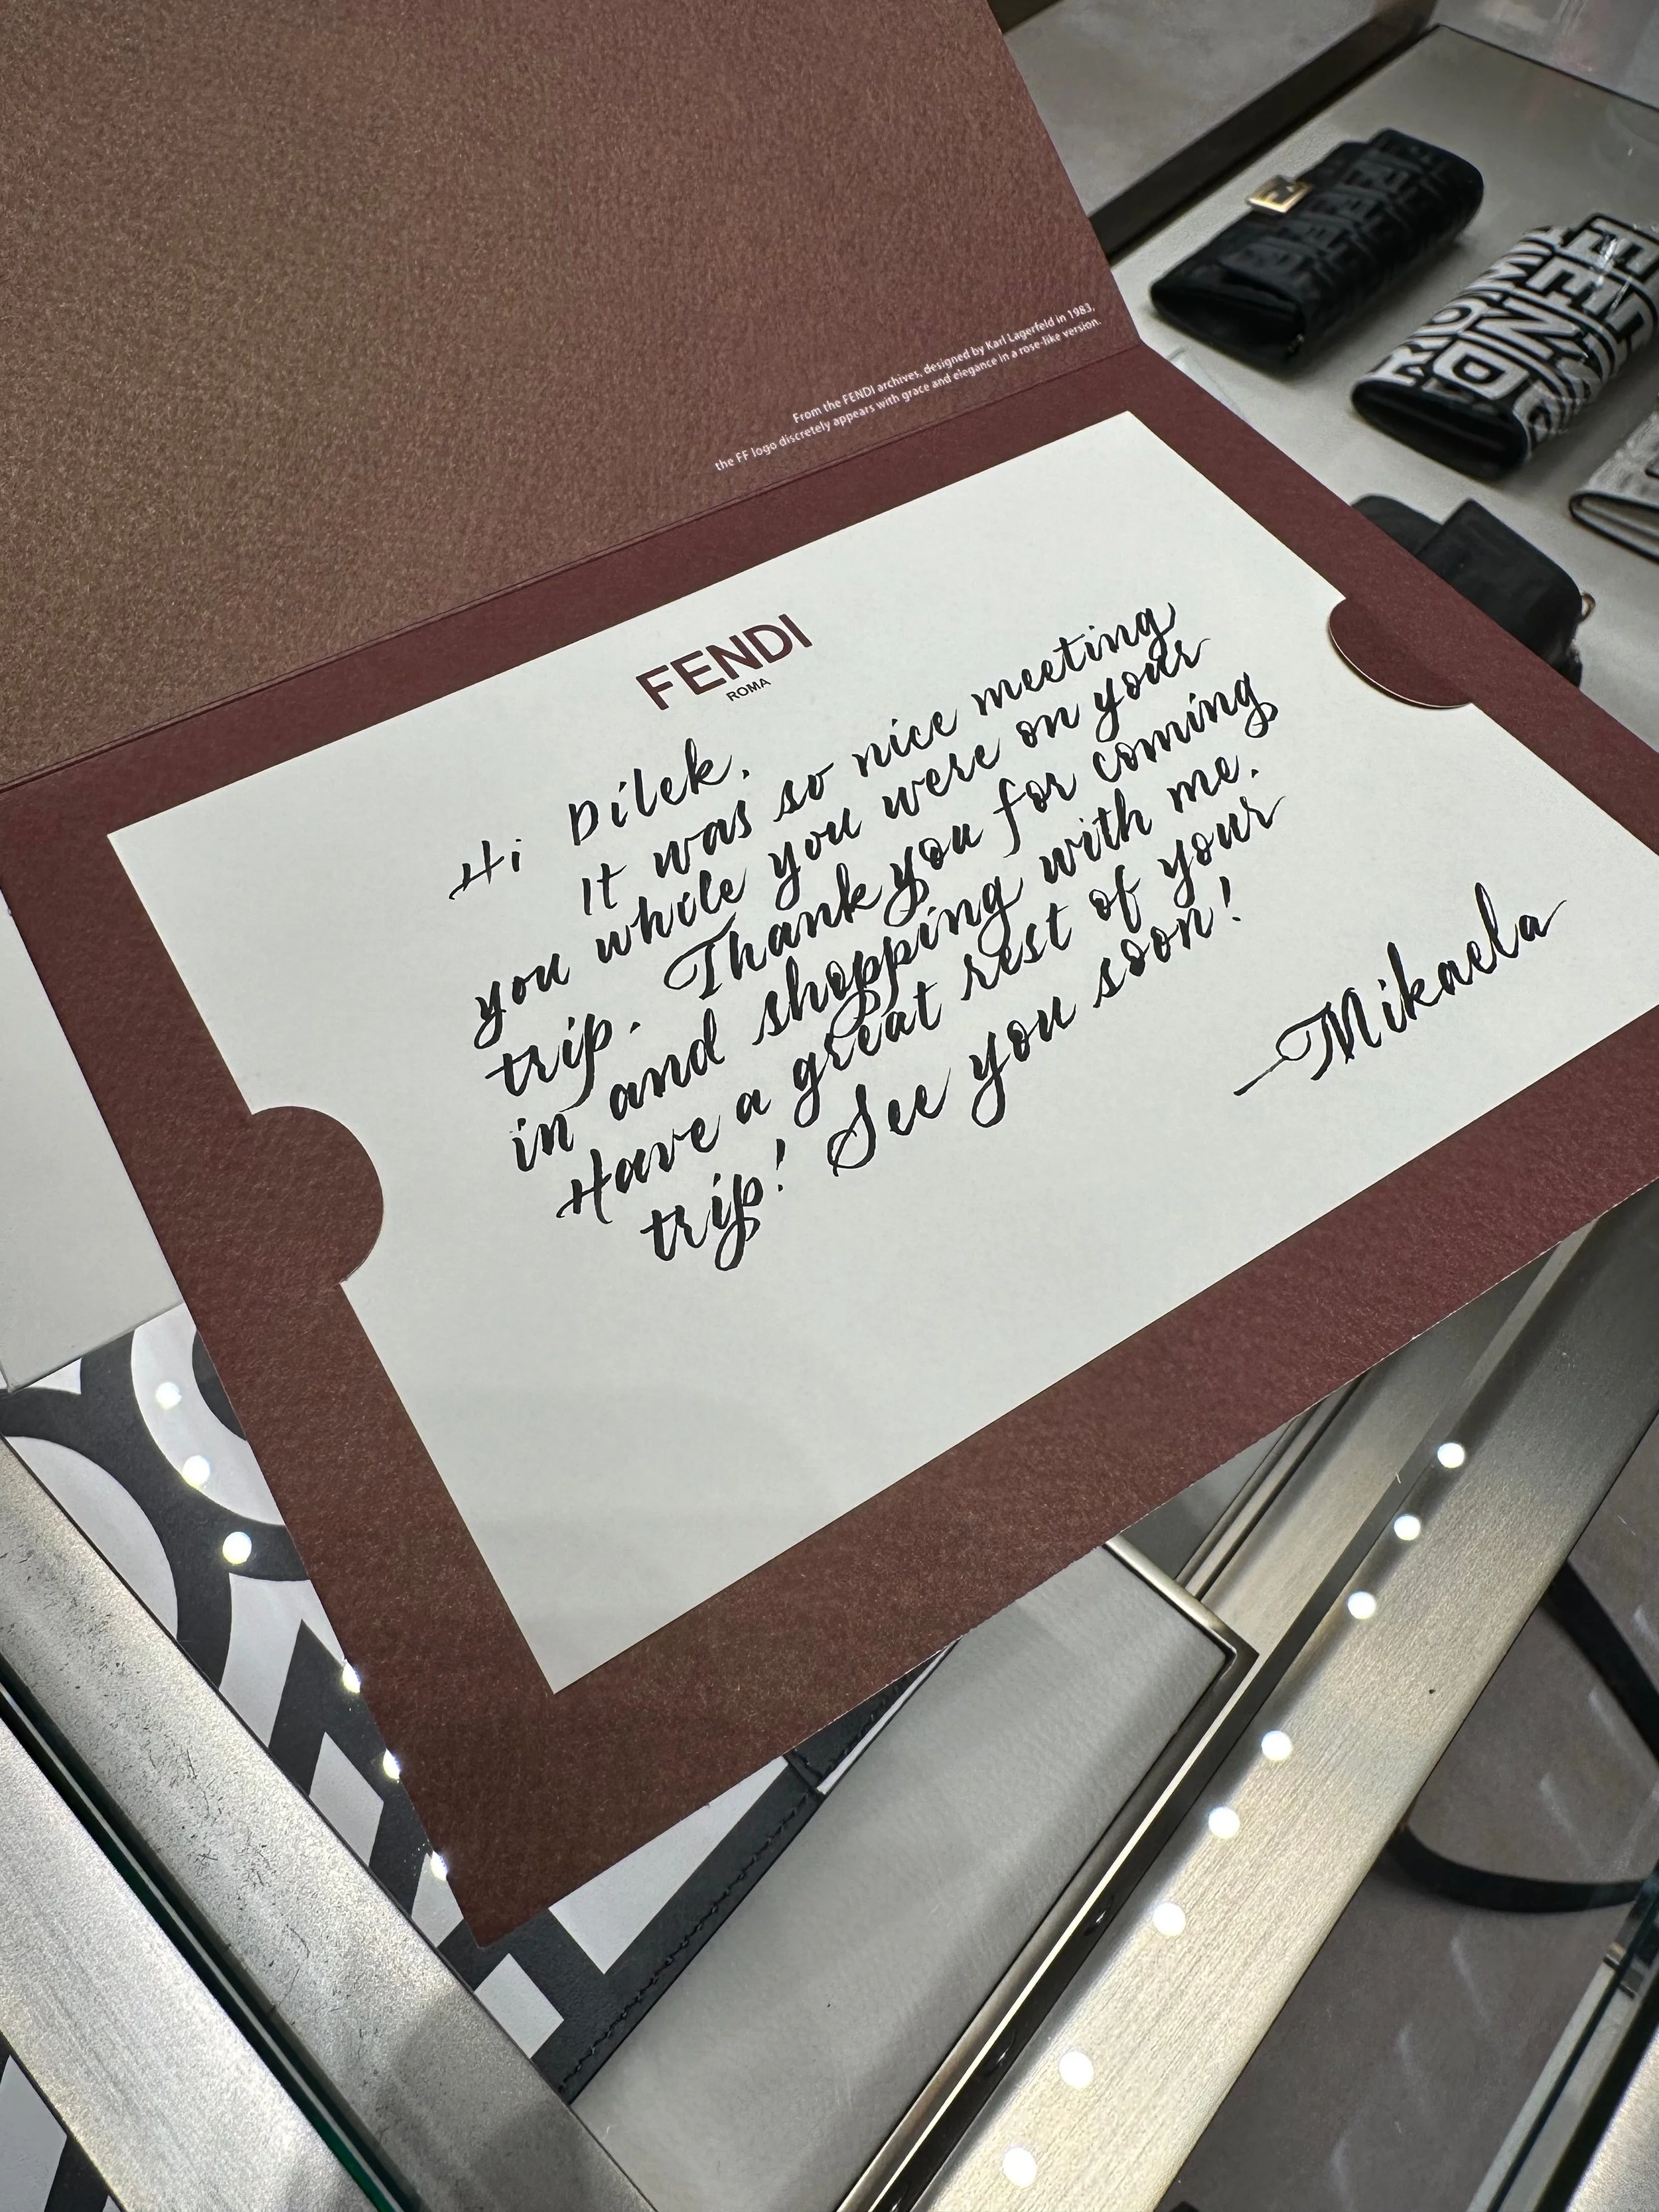 From the FENDI archives, designed by Karl Lagerfeld in 1983,
the FF logo discretely appears with grace and elegance in a rose-like version.
FENDI
ROMA
Hi Dilek,
It was so nice meeting
you while you were on your
trip. Thank you for coming
in and shopping with me.
Have a great rest of your
trip! See you soon!
—Mikaela